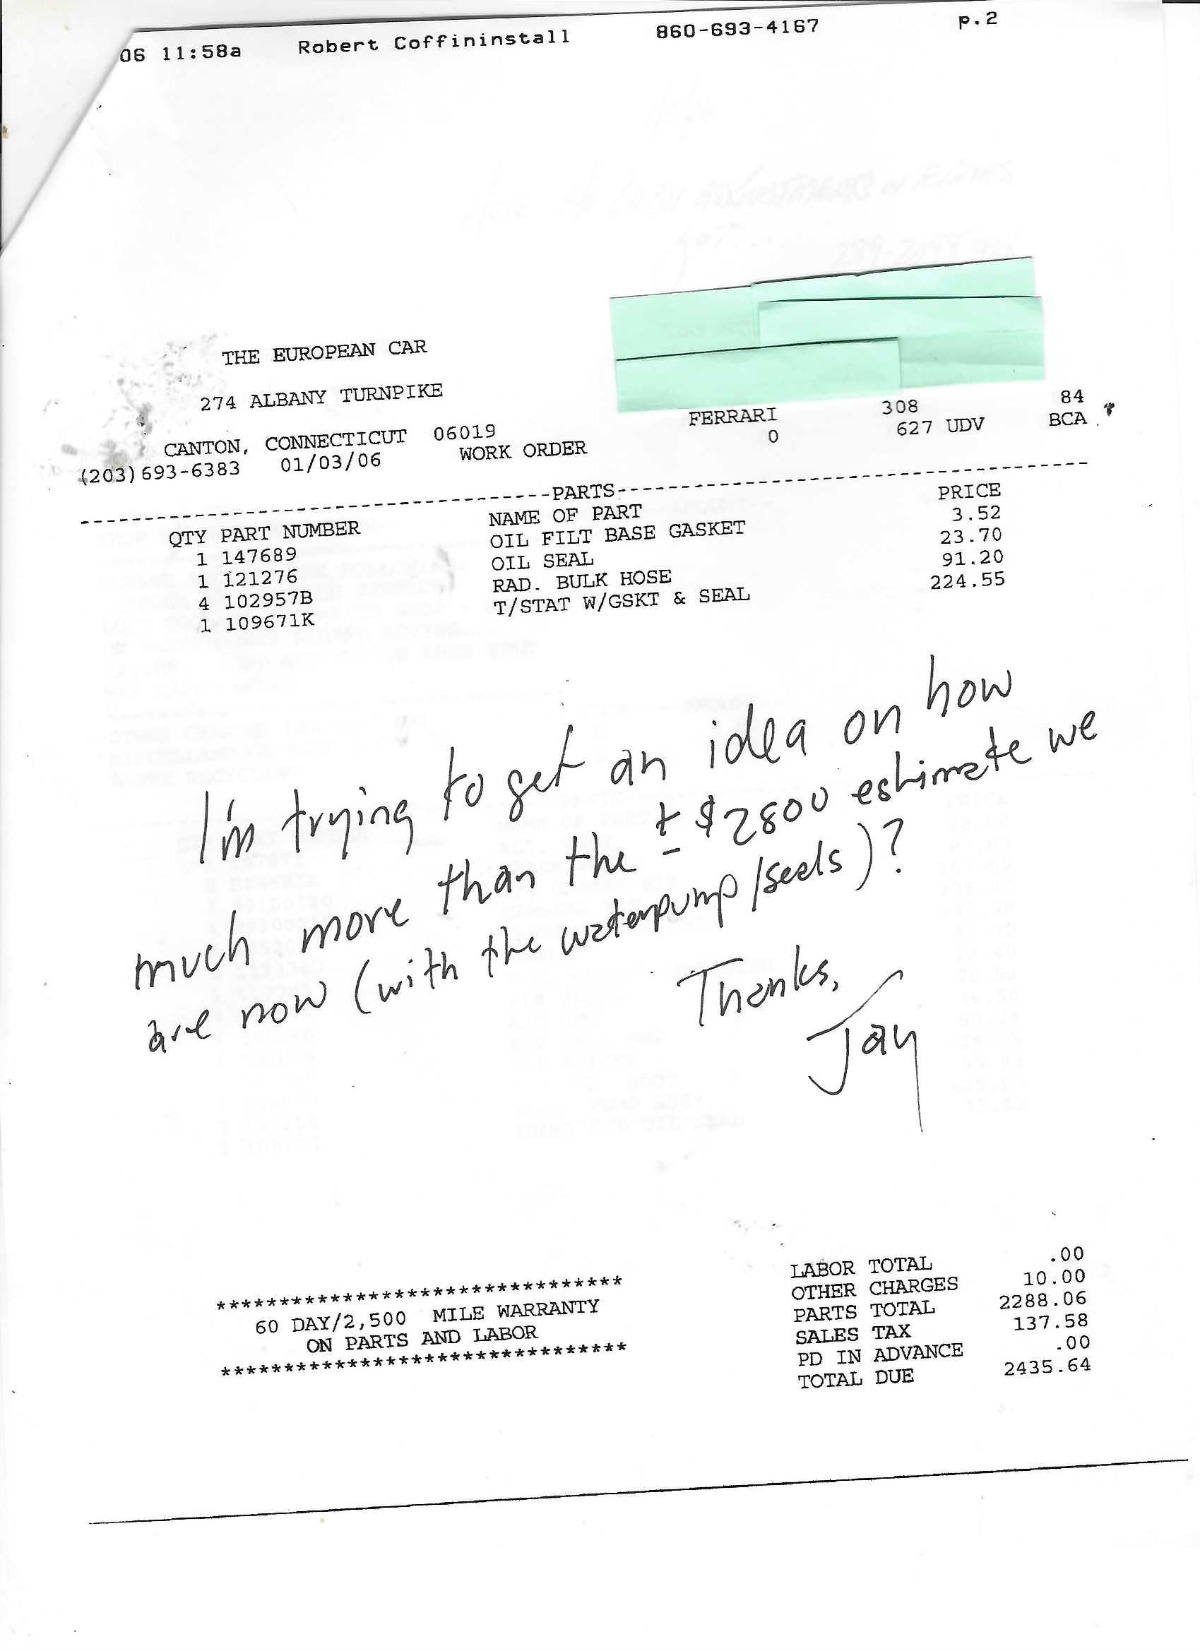 06 11:58a Robert Coffininstall 860-693-4167 p.2
THE EUROPEAN CAR
274 ALBANY TURNPIKE
CANTON, CONNECTICUT 06019
(203)693-6383 01/03/06 WORK ORDER
FERRARI 308 84
0 627 UDV BCA
PARTS
QTY PART NUMBER NAME OF PART PRICE
1 147689 OIL FILT BASE GASKET 3.52
1 121276 OIL SEAL 23.70
4 102957B RAD. BULK HOSE 91.20
1 109671K T/STAT W/GSKT & SEAL 224.55
I'm trying to get an idea on how
much more than the ± $2800 estimate we
are now (with the waterpump/seals)?
Thanks,
Jay
*********************************
60 DAY/2,500 MILE WARRANTY
ON PARTS AND LABOR
*********************************
LABOR TOTAL .00
OTHER CHARGES 10.00
PARTS TOTAL 2288.06
SALES TAX 137.58
PD IN ADVANCE .00
TOTAL DUE 2435.64